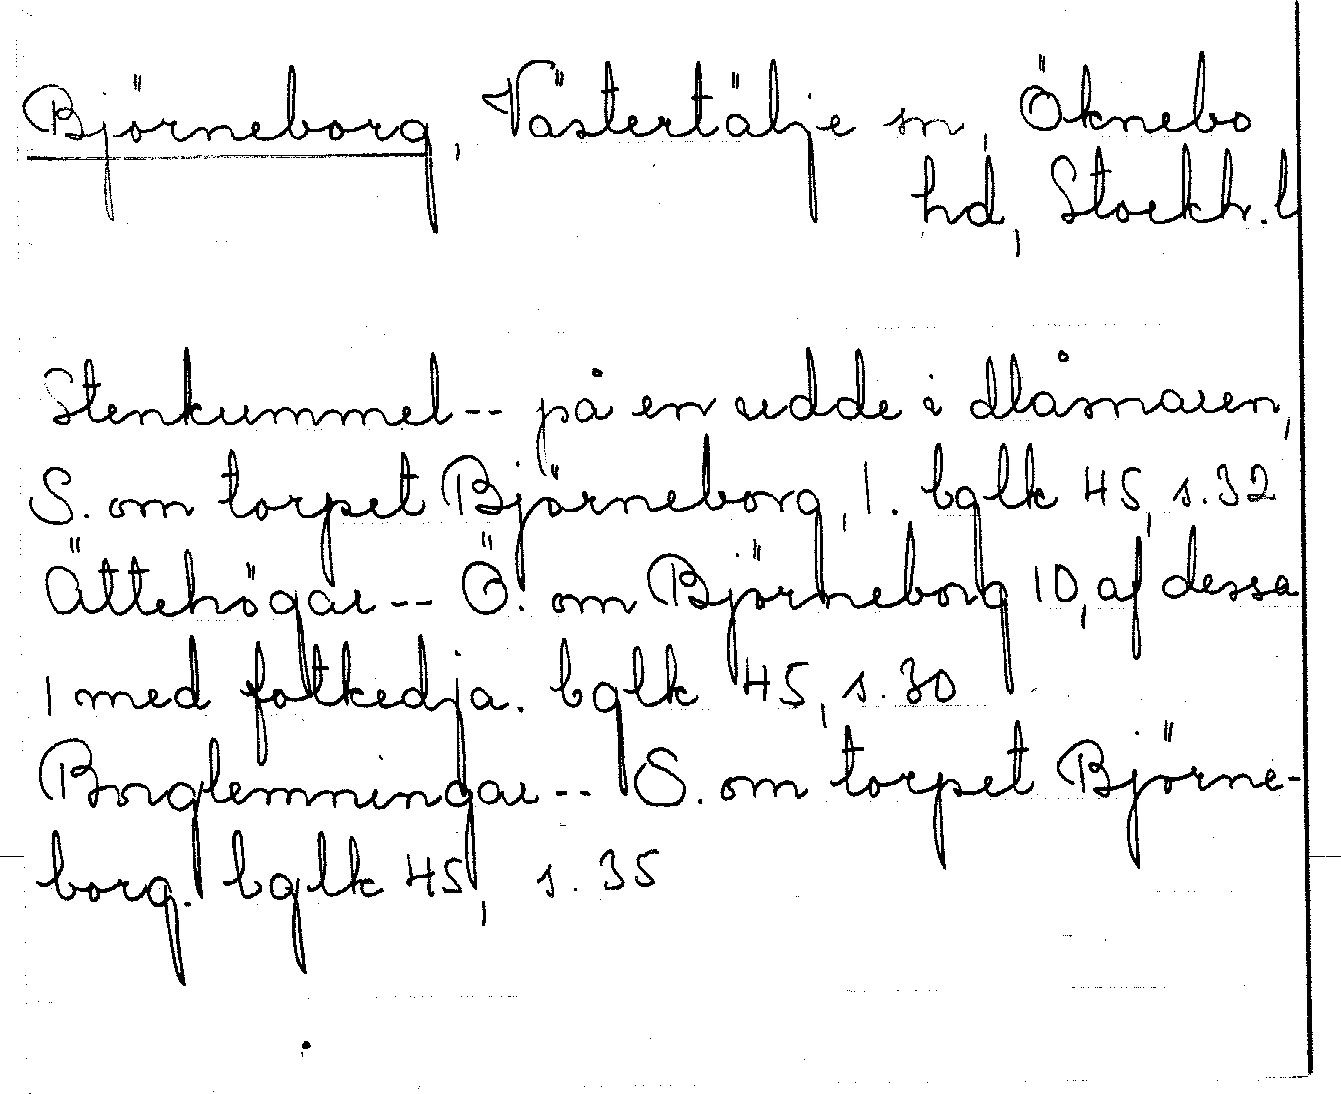 Björneborg, Västertälje sn, Öknebo
hd, Stockh. l
Stenkummel-- på en udde i Måsnaren,
S. om torpet Björneborg, 1. bglk 45, s.32
Ättehögar-- Ö. om Björneborg 10, af dessa
1 med fotkedja. bglk 45, s.30
Borglemningar-- S. om torpet Björne-
borg. bglk 45, s.35